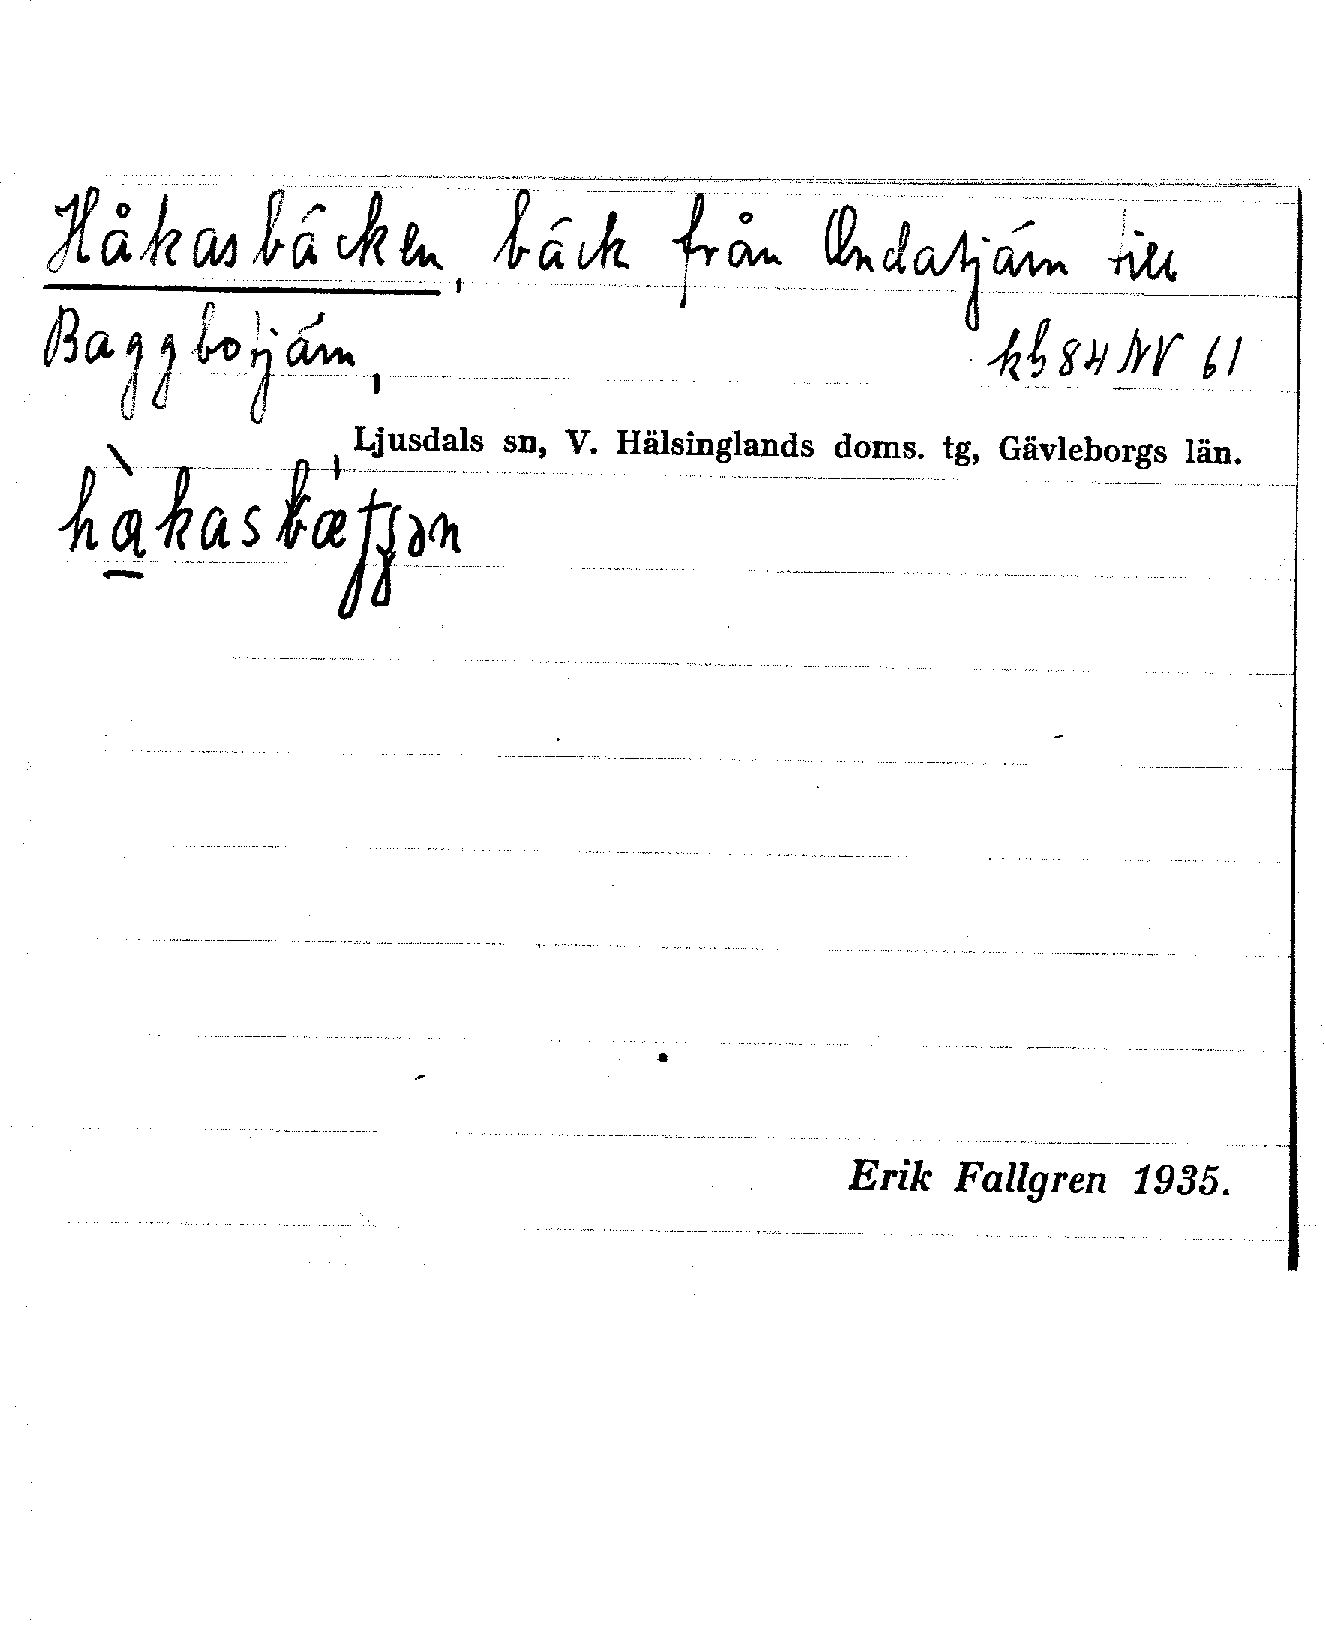 Håkasbäcken, bäck från Öndatjärn till
Baggbotjärn, kb 84 NV 61
Ljusdals sn, V. Hälsinglands doms. tg, Gävleborgs län.
Erik Fallgren 1935.